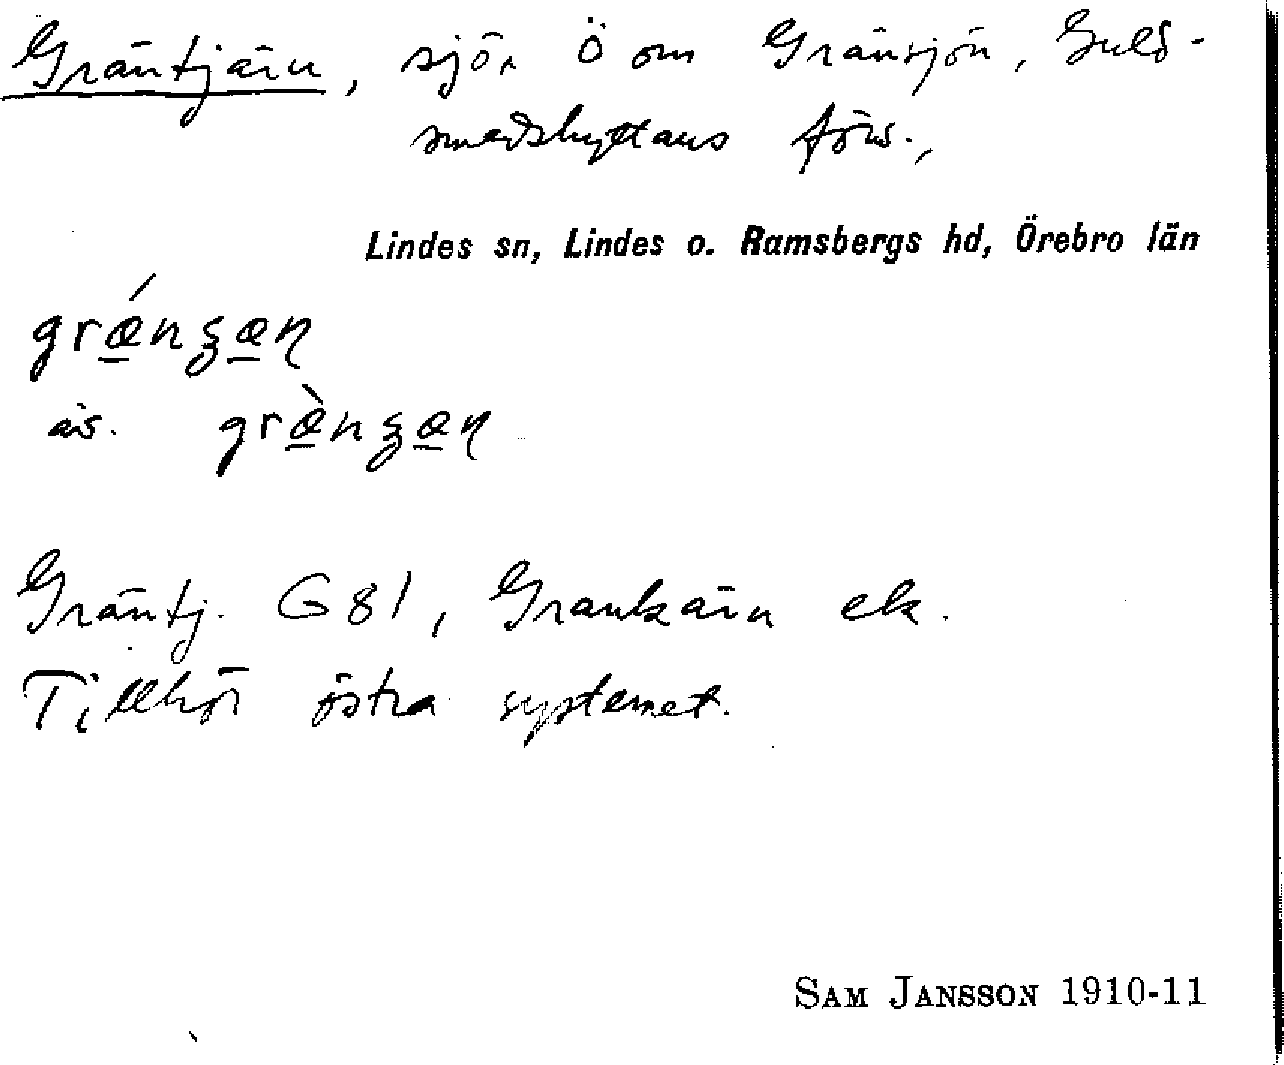 Gräntjärn, sjön Ö om Gränsjön, Guld-
smedshyttans förs.,
Lindes sn, Lindes o. Ramsbergs hd, Örebro län
grǽnʒæɳ
äs. græ̀nʒæɳ
Gräntj. G 81, Grankärn ek.
Tillhör östra systemet.
SAM JANSSON 1910-11